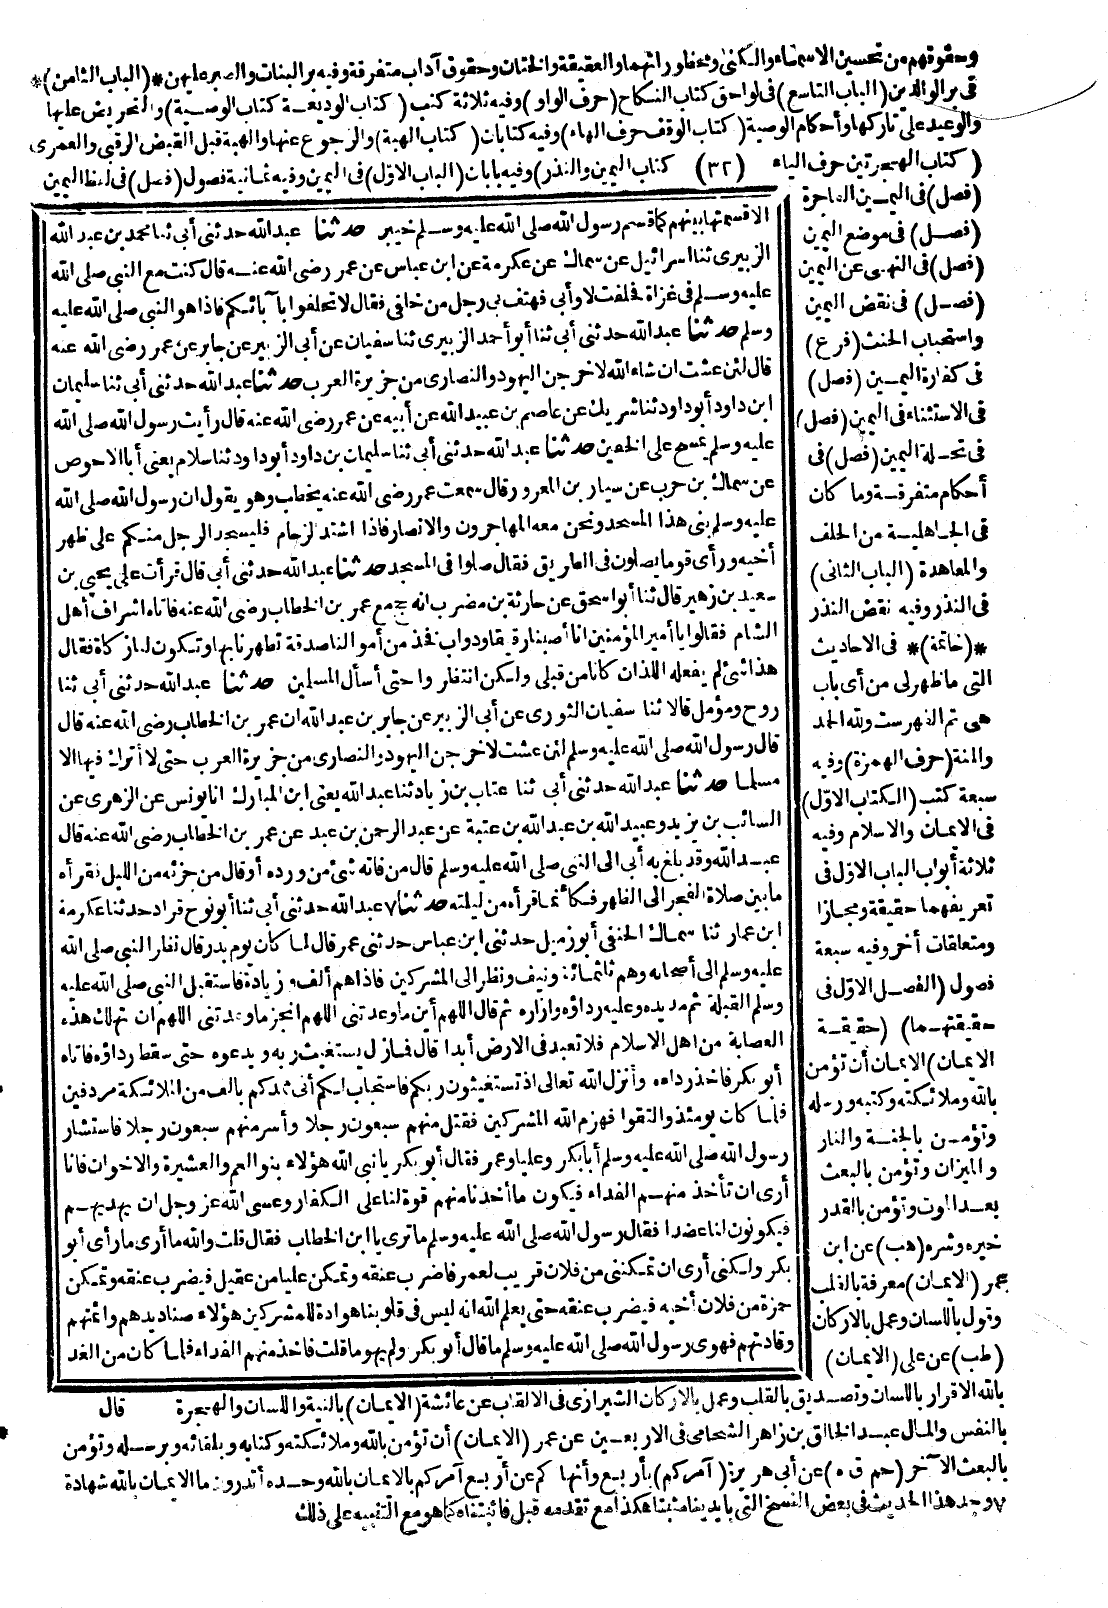 وحقوقهم من تحسين الاسماء والكنى ومحظوراتهما والعقيقة والختان وحقوق آداب متفرقة وفيه بر البنات والصبر عليهن *(الباب الثامن)*
فى بر الوالدين (الباب التاسع) فى لواحق كتاب النكاح (حرف الواو) وفيه ثلاثة كتب (كتاب الوديعة كتاب الوصية) والتحريض عليها
والوعيد على تاركها وأحكام الوصية (كتاب الوقف حرف الهاء) وفيه كتابان (كتاب الهبة) والرجوع عنها والهبة قبل القبض الرقبى والعمرى
(كتاب الهجرتين حرف الياء (٣٢) كتاب اليمين والنذر) وفيه بابان (الباب الاوّل) فى اليمين وفيه ثمانية فصول (فصل) فى لفظ اليمين
(فصل) فى اليمين الفاجرة
(فصل) فى موضع اليمين
(فصل) فى النهى عن اليمين
(فصل) فى نقض اليمين
واستحباب الحنث (فرع)
فى كفارة اليمين (فصل)
فى الاستثناء فى اليمين (فصل)
فى تحلة اليمين (فصل) فى
أحكام متفرقة وما كان
فى الجاهلية من الحلف
والمعاهدة (الباب الثانى)
فى النذر وفيه نقض النذر
*(خاتمة)* فى الاحاديث
التى ما ظهر لى من أى باب
هى تم الفهرست ولله الحمد
والمنة (حرف الهمزة) وفيه
سبعة كتب (الكتاب الاوّل)
فى الايمان والاسلام وفيه
ثلاثة أبواب الباب الاوّل فى
تعريفهما حقيقة ومجازا
ومتعلقات أخر وفيه سبعة
فصول (الفصل الاوّل فى
حقيقتهما) (حقيقة
الايمان) الايمان أن تؤمن
بالله وملائكته وكتبه ورسله
وتؤمن بالجنة والنار
والميزان وتؤمن بالبعث
بعد الموت وتؤمن بالقدر
خيره وشره (هب) عن ابن
عمر (الايمان) معرفة بالقلب
وقول باللسان وعمل بالاركان
(طب) عن على (الايمان)
الا قسمتها بينهم كما قسم رسول الله صلى الله عليه وسلم خيبر حدثنا عبد الله حدثنى أبى ثنا محمد بن عبد الله
الزبيرى ثنا اسرائيل عن سماك عن عكرمة عن ابن عباس عن عمر رضى الله عنه قال كنت مع النبى صلى الله
عليه وسلم فى غزاة فحلفت لا وأبى فهتف بى رجل من خلفى فقال لا تحلفوا بآبائكم فاذا هو النبى صلى الله عليه
وسلم حدثنا عبد الله حدثنى أبى ثنا أبو أحمد الزبيرى ثنا سفيان عن أبى الزبير عن جابر عن عمر رضى الله عنه
قال لئن عشت ان شاء الله لاخرجن اليهود والنصارى من جزيرة العرب حدثنا عبد الله حدثنى أبى ثنا سليمان
ابن داود أبو داود ثنا شريك عن عاصم بن عبيد الله عن أبيه عن عمر رضى الله عنه قال رأيت رسول الله صلى الله
عليه وسلم يمسح على الخفين حدثنا عبد الله حدثنى أبى ثنا سليمان بن داود أبو داود ثنا سلام يعنى أبا الاحوص
عن سماك بن حرب عن سيار بن المعرور قال سمعت عمر رضى الله عنه يخطب وهو يقول ان رسول الله صلى الله
عليه وسلم بنى هذا المسجد ونحن معه المهاجرون والانصار فاذا اشتد الزحام فليسجد الرجل منكم على ظهر
أخيه ورأى قوما يصلون فى الطريق فقال صلوا فى المسجد حدثنا عبد الله حدثنى أبى قال قرأت على يحيى بن
سعيد بن زهير قال ثنا أبو اسحق عن حارثة بن مضرب انه حج مع عمر بن الخطاب رضى الله عنه فاتاه اشراف أهل
الشام فقالوا يا أمير المؤمنين انا أصبنا رقيقا ودواب فخذ من أموالنا صدقة تطهرنا بها وتكون لنا زكاة فقال
هذا شئ لم يفعله اللذان كانا من قبلى ولكن انتظروا حتى أسأل المسلمين حدثنا عبد الله حدثنى أبى ثنا
روح ومؤمل قالا ثنا سفيان الثورى عن أبى الزبير عن جابر بن عبد الله ان عمر بن الخطاب رضى الله عنه قال
قال رسول الله صلى الله عليه وسلم لئن عشت لاخرجن اليهود والنصارى من جزيرة العرب حتى لا أترك فيها الا
مسلما حدثنا عبد الله حدثنى أبى ثنا عتاب بن زياد ثنا عبد الله يعنى ابن المبارك انا يونس عن الزهرى عن
السائب بن يزيد وعبيد الله بن عبد الله بن عتبة عن عبد الرحمن بن عبد عن عمر بن الخطاب رضى الله عنه قال
عبد الله وقد بلغ به أبى الى النبى صلى الله عليه وسلم قال من فاته شئ من ورده أو قال من حزبه من الليل فقرأه
ما بين صلاة الفجر الى الظهر فكأنما قرأه من ليلته حدثنا ٧ عبد الله حدثنى أبى ثنا أبو نوح قراد حدثنا عكرمة
ابن عمار ثنا سماك الحنفى أبو زميل حدثنى ابن عباس حدثنى عمر قال لما كان يوم بدر قال نظر النبى صلى الله
عليه وسلم الى أصحابه وهم ثلثمائة ونيف ونظر الى المشركين فاذا هم ألف وزيادة فاستقبل النبى صلى الله عليه
وسلم القبلة ثم مد يديه وعليه رداؤه وازاره ثم قال اللهم أين ما وعدتنى اللهم انجز ما وعدتنى اللهم ان تهلك هذه
العصابة من اهل الاسلام فلا تعبد فى الارض أبدا قال فما زال يستغيث ربه ويدعوه حتى سقط رداؤه فاتاه
أبو بكر فاخذ رداءه وأنزل الله تعالى اذ تستغيثون ربكم فاستجاب لكم أنى ممدكم بالف من الملائكة مردفين
فلما كان يومئذ والتقوا فهزم الله المشركين فقتل منهم سبعون رجلا وأسر منهم سبعون رجلا فاستشار
رسول الله صلى الله عليه وسلم أبا بكر وعليا وعمر فقال أبو بكر يا نبى الله هؤلاء بنو العم والعشيرة والاخوان فانا
أرى ان تأخذ منهم الفداء فيكون ما أخذنا منهم قوة لنا على الكفار وعسى الله عز وجل ان يهديهم
فيكونون لنا عضدا فقال رسول الله صلى الله عليه وسلم ما ترى يا ابن الخطاب فقال قلت والله ما أرى ما رأى أبو
بكر ولكنى أرى ان تمكننى من فلان قريب لعمر فاضرب عنقه وتمكن عليا من عقيل فيضرب عنقه وتمكن
حمزة من فلان أخيه فيضرب عنقه حتى يعلم الله انه ليس فى قلوبنا هوادة للمشركين هؤلاء صناديدهم وائمتهم
وقادتهم فهوى رسول الله صلى الله عليه وسلم ما قال أبو بكر ولم يهو ما قلت فاخذ منهم الفداء فلما كان من الغد
بالله الاقرار باللسان وتصديق بالقلب وعمل بالاركان الشيرازى فى الالقاب عن عائشة (الايمان) بالنية واللسان والهجرة قال
بالنفس والمال عبد الخالق بن زاهر الشحامى فى الاربعين عن عمر (الايمان) أن تؤمن بالله وملائكته وكتابه وبلقائه وبرسله وتؤمن
بالبعث الآخر (حم ق ه) عن أبى هريرة (آمركم) بأربع وأنهاكم عن أربع آمركم بالايمان بالله وحده أتدرون ما الايمان بالله شهادة
٧ وجد هذا الحديث فى بعض النسخ التى بايدينا مثبتا هكذا مع تقدمه قبل فاثبتناه كما هو مع التنبيه على ذلك